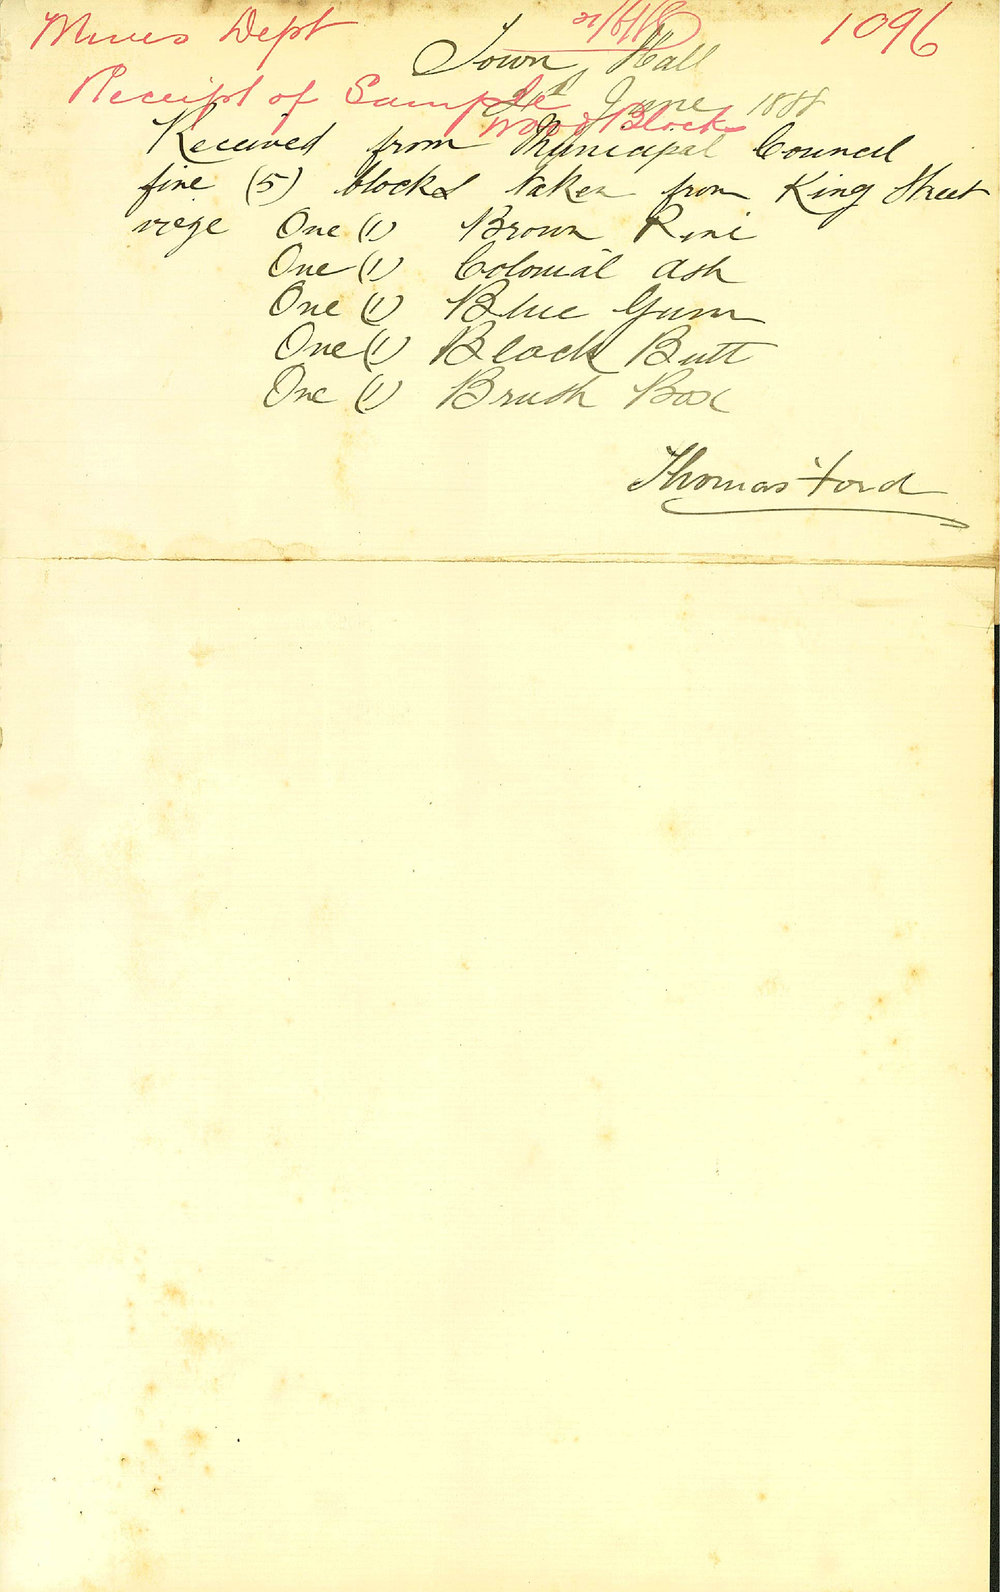 Mines Dept
21/6/88
1096
Town Hall
Receipt of Sample
Wood Blocks
21st June 1888
Received from Municipal Council
five (5) blocks taken from King Street
vize One (1) Brown Pine
One (1) Colonial Ash
One (1) Blue Gum
One (1) Black Butt
One (1) Brush Box
Thomas Ford